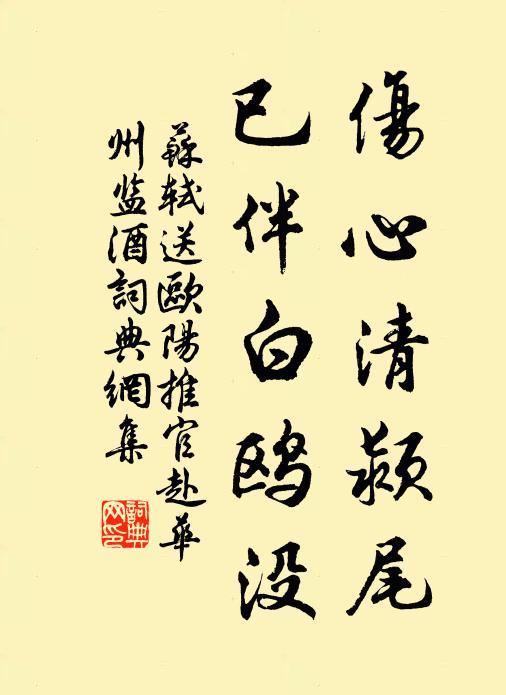 傷心清潁尾
已伴白鸥没
蘇軾送歐陽推官赴華
州监酒詞典網集
詞典
网印